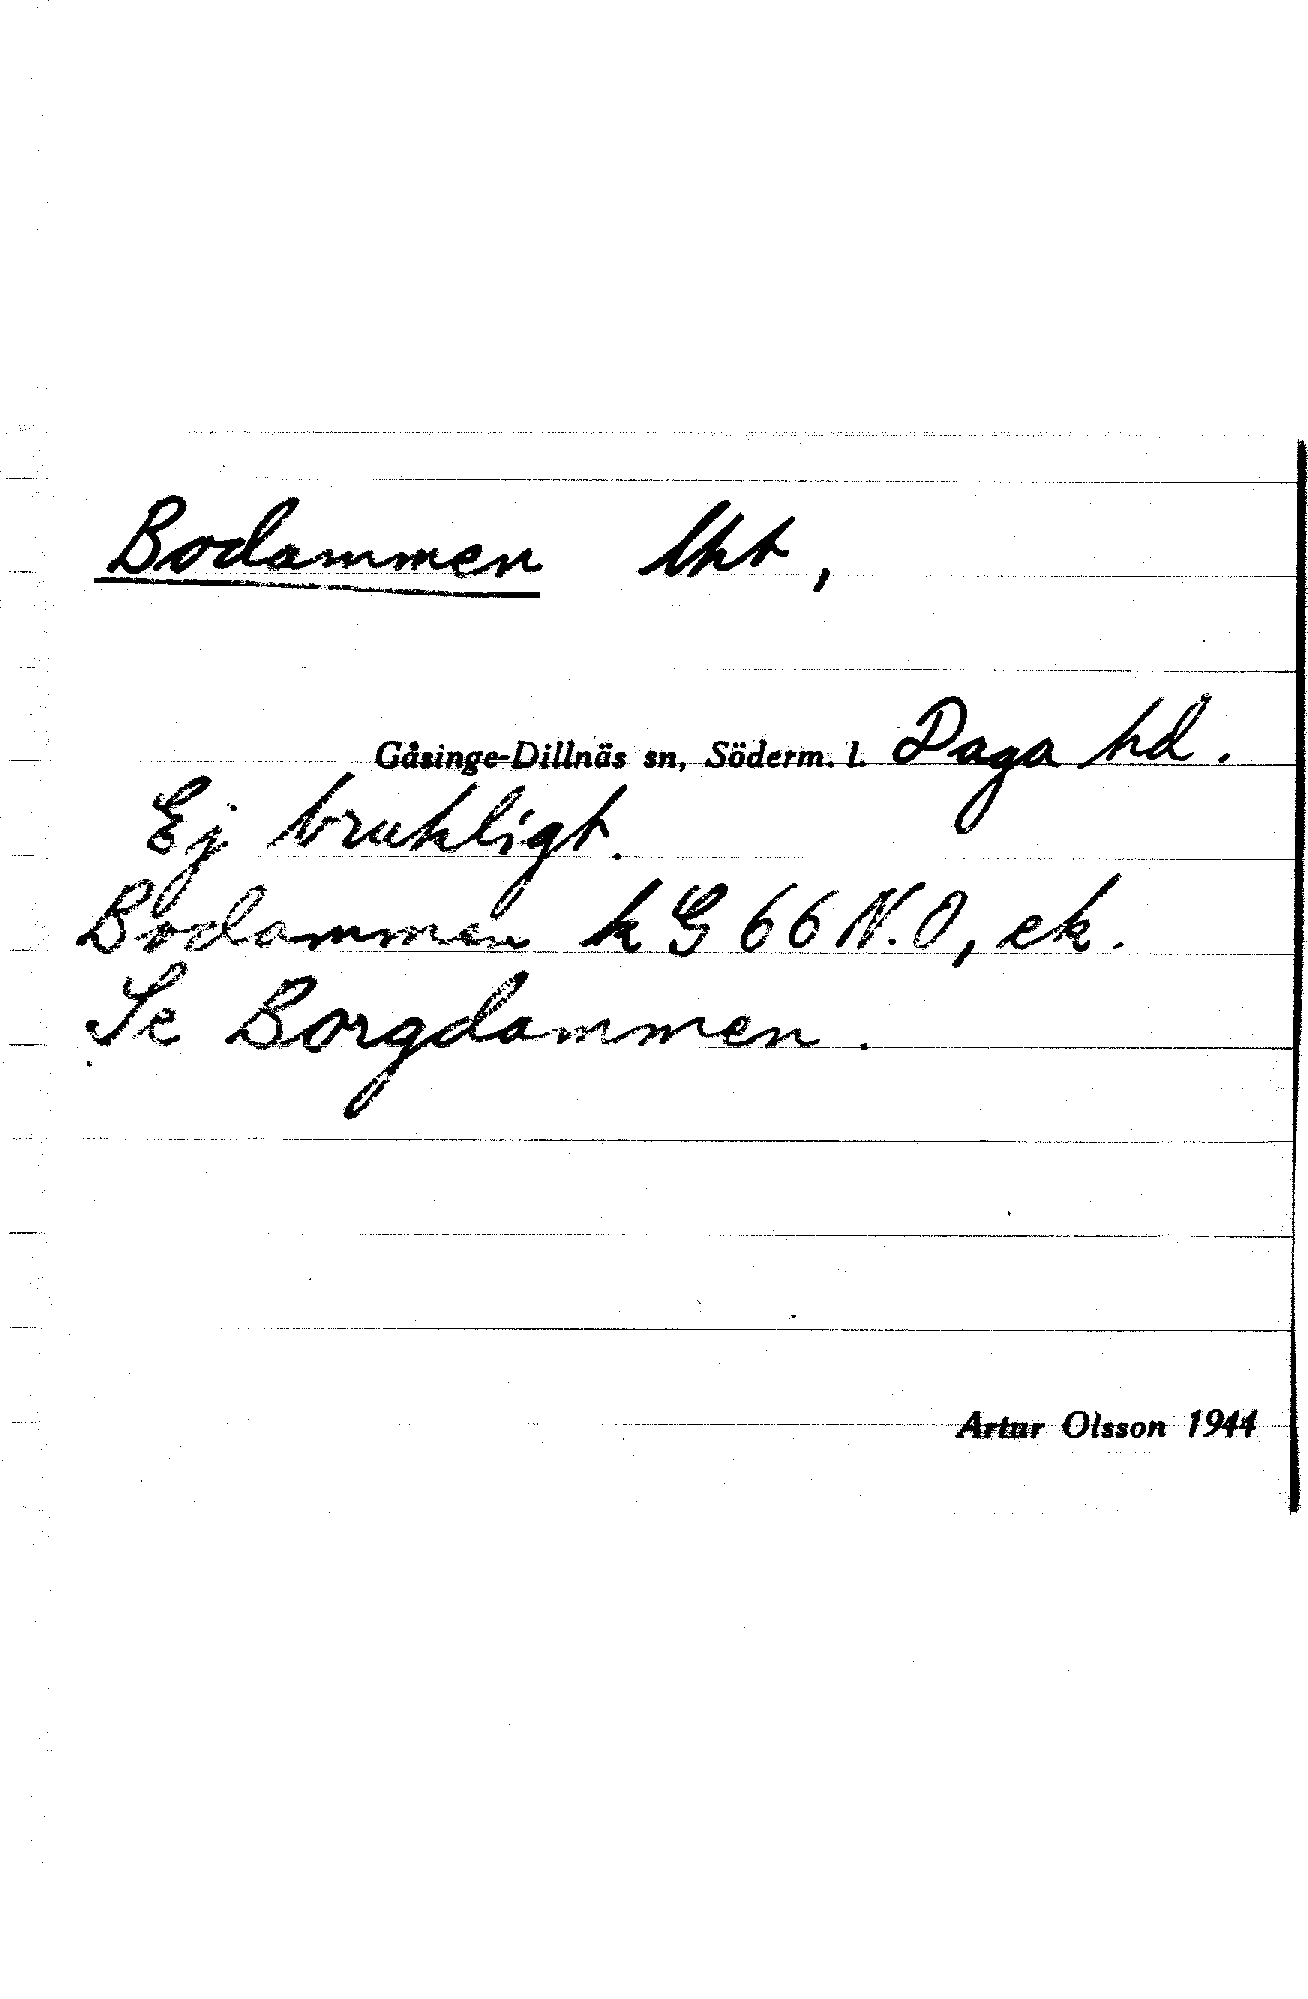 Bodammen lkt,
Gåsinge-Dillnäs sn, Söderm. l. Daga hd.
Ej brukligt.
Bodammen k G 66 N.O, ek.
Se Borgdammen.
Artur Olsson 1944